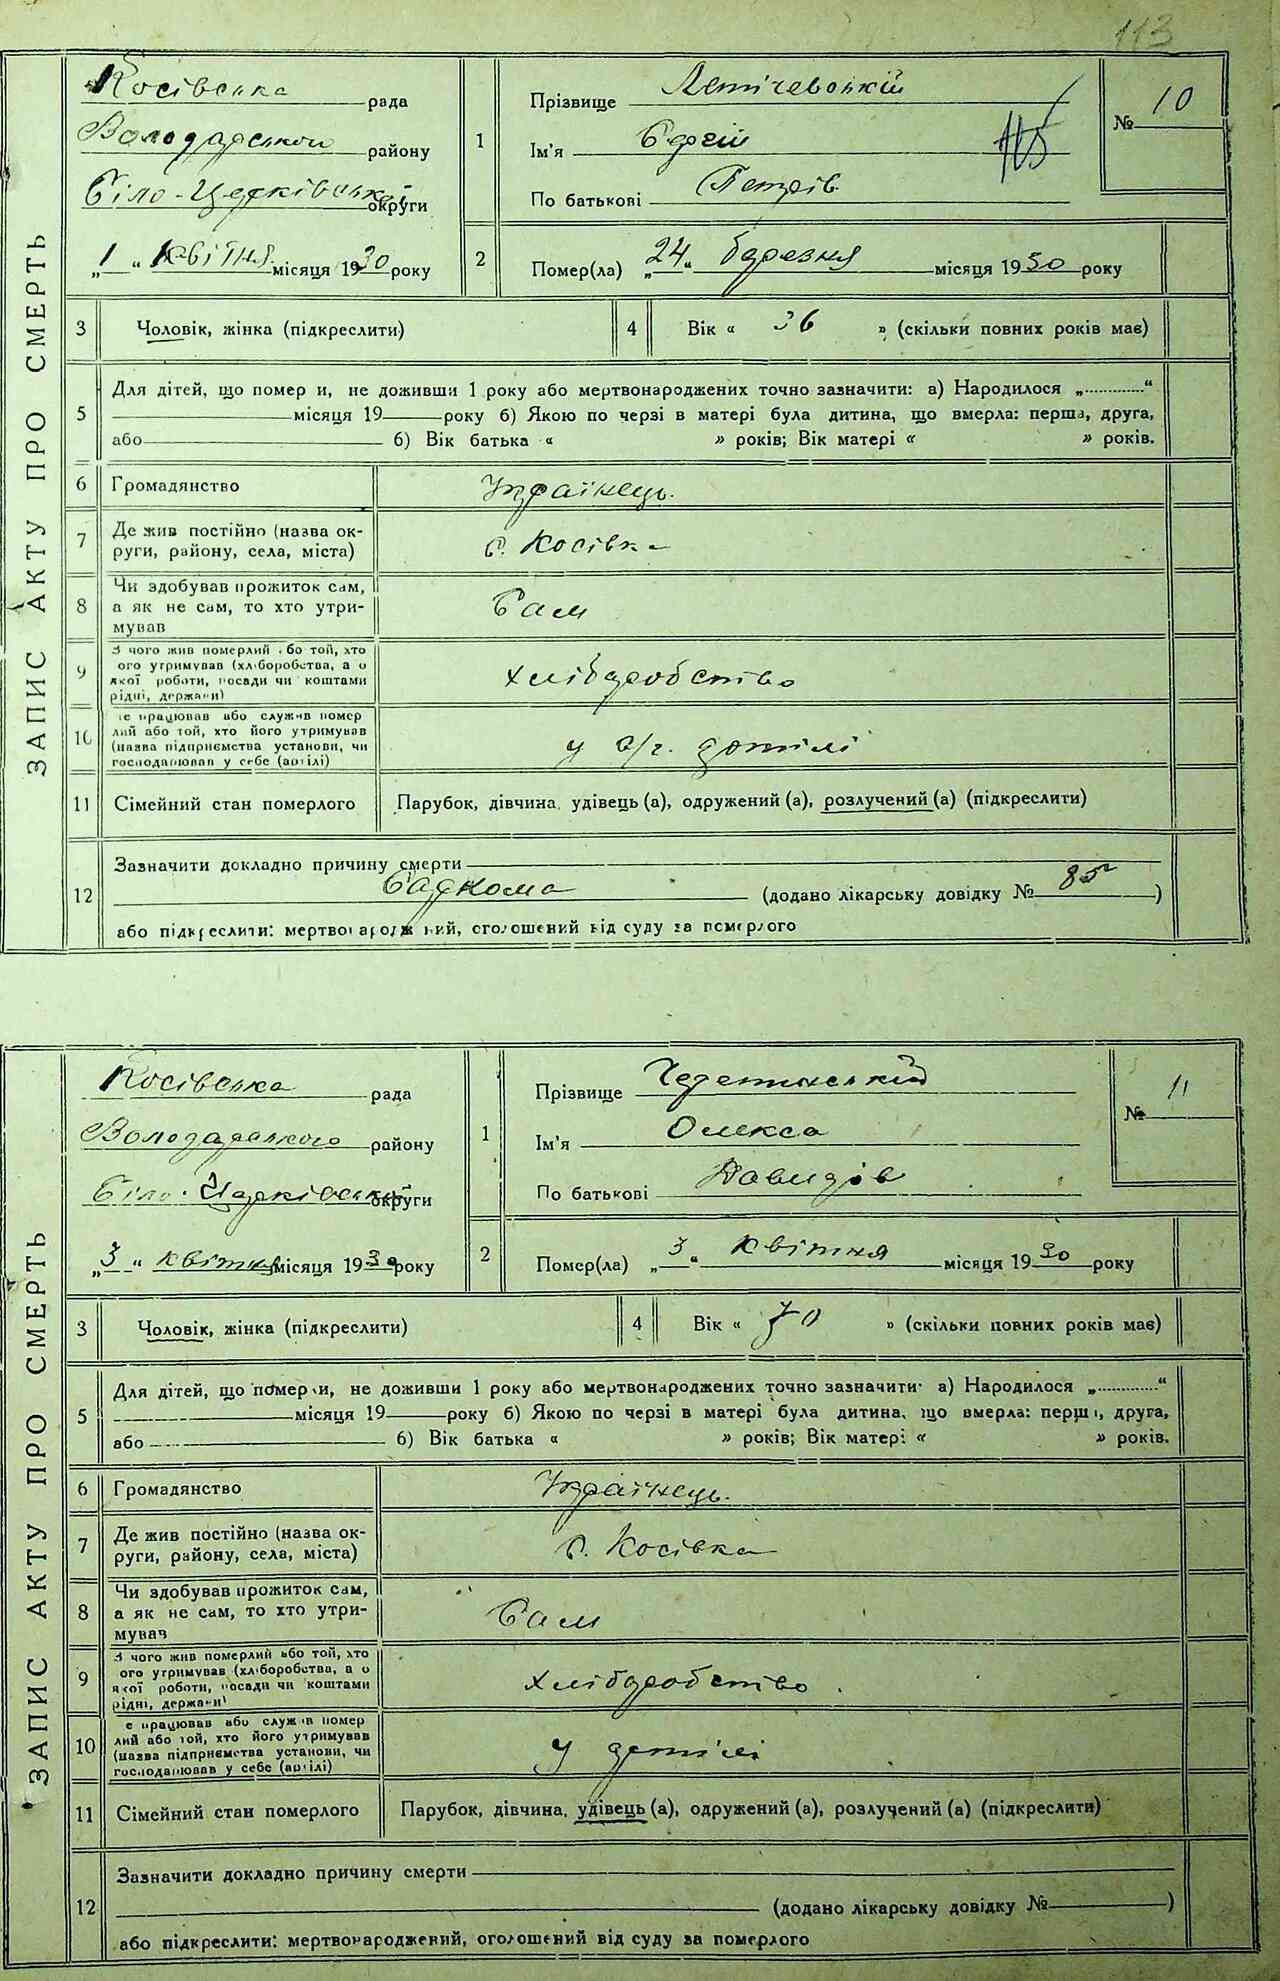 113
ЗАПИС АКТУ ПРО СМЕРТЬ
Косівська рада
Володарського району
Біло-Церківської округи
„1“ квітня місяця 1930 року
1
Прізвище Летічевський
Ім'я Сергій
По батькові Петрів
115
№ 10
2
Помер(ла) „24“ березня місяця 1930 року
3 Чоловік, жінка (підкреслити)
4 Вік « 36 » (скільки повних років має)
5
Для дітей, що помер и, не доживши 1 року або мертвонароджених точно зазначити: а) Народилося „............“
місяця 19 року б) Якою по черзі в матері була дитина, що вмерла: перша, друга,
або б) Вік батька « » років; Вік матері « » років.
6 Громадянство Українець.
7 Де жив постійно (назва ок-
руги, району, села, міста) с. Косівка
8 Чи здобував прожиток сам,
а як не сам, то хто утри-
мував Сам
9 З чого жив померлий або той, хто
ого утримував (хліборобства, а о
якої роботи, посади чи коштами
рідні, держави) хліборобство
10 е працював або служив помер
лий або той, хто його утримував
(назва підприємства установи, чи
господарював у себе (артілі) у с/г. артілі
11 Сімейний стан померлого Парубок, дівчина, удівець (а), одружений (а), розлучений (а) (підкреслити)
12
Зазначити докладно причину смерти
Саркома (додано лікарську довідку № 85)
або підкреслити: мертвонароджений, оголошений від суду за померлого
ЗАПИС АКТУ ПРО СМЕРТЬ
Косівська рада
Володарського району
Біло-Церківської округи
„3“ квітня місяця 1930 року
1
Прізвище
Ім'я Олекса
По батькові Давидів
№ 11
2
Помер(ла) „3“ квітня місяця 1930 року
3 Чоловік, жінка (підкреслити)
4 Вік « 70 » (скільки повних років має)
5
Для дітей, що померли, не доживши 1 року або мертвонароджених точно зазначити: а) Народилося „............“
місяця 19 року б) Якою по черзі в матері була дитина, що вмерла: перша, друга,
або б) Вік батька « » років; Вік матері « » років.
6 Громадянство Українець.
7 Де жив постійно (назва ок-
руги, району, села, міста) с. Косівка
8 Чи здобував прожиток сам,
а як не сам, то хто утри-
мував Сам
9 З чого жив померлий або той, хто
ого утримував (хліборобства, а о
якої роботи, посади чи коштами
рідні, держави) хліборобство.
10 е працював або служив помер
лий або той, хто його утримував
(назва підприємства установи, чи
господарював у себе (артілі) у артілі
11 Сімейний стан померлого Парубок, дівчина, удівець (а), одружений (а), розлучений (а) (підкреслити)
12
Зазначити докладно причину смерти
(додано лікарську довідку № )
або підкреслити: мертвонароджений, оголошений від суду за померлого